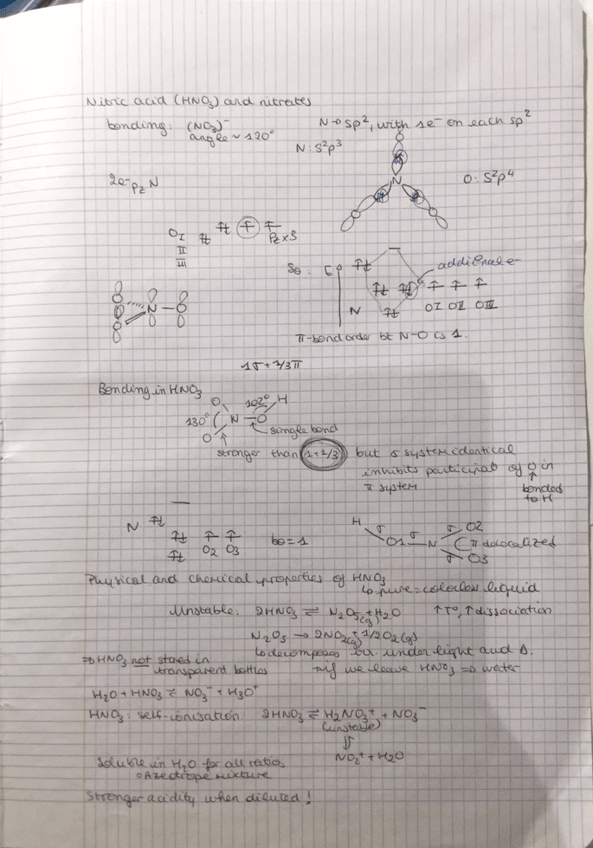 Nitric acid (HNO₃) and nitrates
bonding: (NO₃)⁻ N→sp², with 1e⁻ on each sp²
angle ~ 120°
N: s²p³
O: s²p⁴
N
2e⁻ pz N
OI
II
III
pz x3
N
additional e⁻
E
N
OI OI OIII
π-bond order bt N-O is 1.
N O
1σ + 1/3π
Bonding in HNO₃
102° H
O
130° N O
O
single bond
stronger than (1+1/3) but σ system identical
inhibits of O in
π system
bonded
to H
N
O2 O3
bo = 1
H σ O1 σ N σ O2
π delocalized
σ O3
Physical and chemical properties of HNO₃
↳ pure = colorless liquid
Unstable: 2HNO₃ ⇌ N₂O₅(g) + H₂O ↑T°, ↑dissociation
N₂O₅ → 2NO₂(g) + 1/2 O₂(g)
↳ decomposes under light and Δ.
⇒ HNO₃ not stored in
transparent bottles
if we leave HNO₃ ⇒ water
H₂O + HNO₃ ⇌ NO₃⁻ + H₃O⁺
HNO₃: self-ionisation 2HNO₃ ⇌ H₂NO₃⁺ + NO₃⁻
(unstable)
NO₂⁺ + H₂O
Soluble in H₂O for all ratios
Azeotrope mixture
Stronger acidity when diluted!